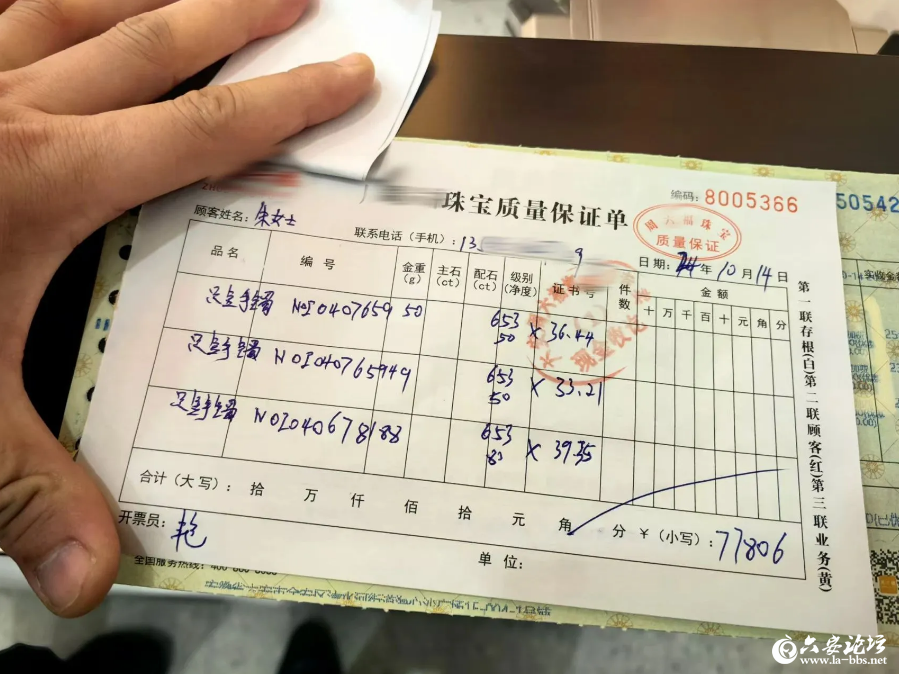 珠宝质量保证单
编码: 8005366
顾客姓名: 朱女士
联系电话（手机）: 13 9
周六福珠宝
质量保证
日期: 24 年 10 月 14 日
品名 编号 金重(g) 主石(ct) 配石(ct) 级别(净度) 证书号 件数 金额
十 万 千 百 十 元 角 分
足金手镯 NOI0407659 50 653 50 X 36.44
足金手镯 NOI040765949 653 50 X 33.21
足金手镯 NOI040678188 653 80 X 39.35
现金收讫
合计（大写）: 拾 万 仟 佰 拾 元 角 分 ¥（小写）: 77806
开票员:
单位:
全国服务热线:
第一联存根(白)第二联顾客(红)第三联业务(黄)
50542
六安论坛
www.la-bbs.net